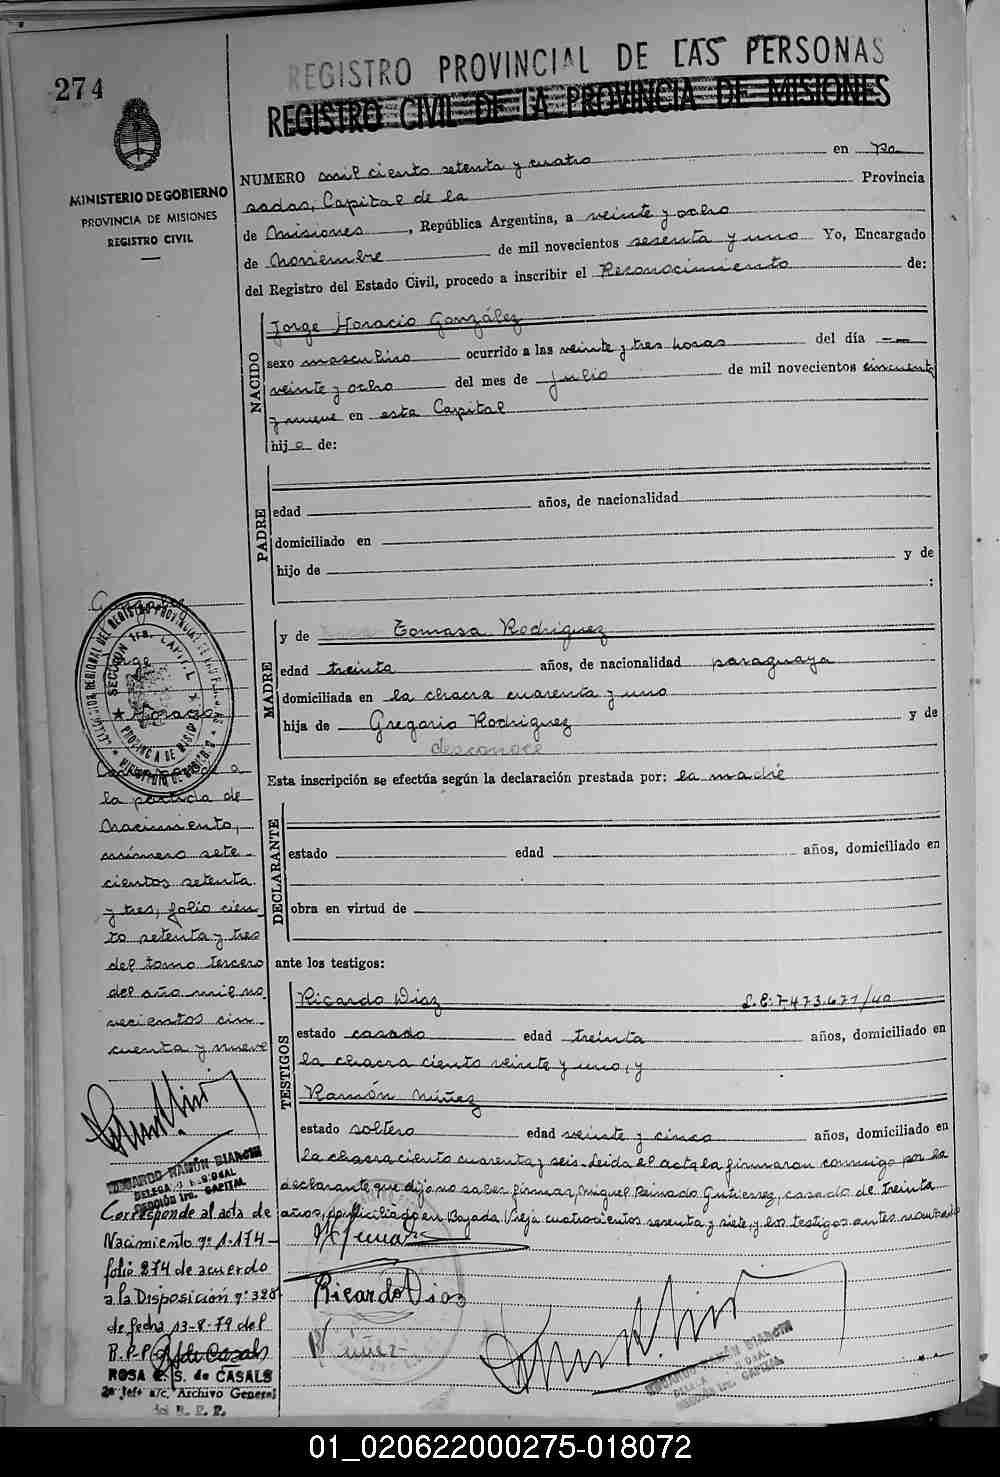 274
REGISTRO PROVINCIAL DE LAS PERSONAS
REGISTRO CIVIL DE LA PROVINCIA DE MISIONES
MINISTERIO DE GOBIERNO
PROVINCIA DE MISIONES
REGISTRO CIVIL
NUMERO mil ciento setenta y cuatro en Po
sadas, Capital de la Provincia
de Misiones, República Argentina, a veinte y ocho
de Noviembre de mil novecientos sesenta y uno Yo, Encargado
del Registro del Estado Civil, procedo a inscribir el Reconocimiento de:
NACIDO
Jorge Horacio González
sexo masculino ocurrido a las veinte y tres horas del día
veinte y ocho del mes de Julio de mil novecientos cincuenta
y nueve en esta Capital
hijo de:
PADRE
edad años, de nacionalidad
domiciliado en
hijo de y de
:
MADRE
y de Tomasa Rodriguez
edad treinta años, de nacionalidad paraguaya
domiciliada en la chacra cuarenta y uno
hija de Gregorio Rodriguez y de
desconoce
Esta inscripción se efectúa según la declaración prestada por: la madre
DECLARANTE
estado edad años, domiciliado en
obra en virtud de
ante los testigos:
TESTIGOS
Ricardo Diaz L.E. 7.473.671/40
estado casado edad treinta años, domiciliado en
la chacra ciento veinte y uno, y
Ramón Núñez
estado soltero edad veinte y cinco años, domiciliado en
la chacra ciento cuarenta y seis. Leida el acta la firmaron conmigo por la
declarante que dijo no saber firmar, Miguel Reinado Gutierrez, casado de treinta
años, domiciliado en Bajada Vieja cuatrocientos sesenta y siete, y los testigos antes nombrados
Ricardo Diaz
R Núñez
EDUARDO RAMÓN BIANCHI
SECCIÓN 1ra. CAPITAL
Jorge
Horacio
la partida de
Nacimiento,
número sete-
cientos setenta
y tres, folio cien
to setenta y tres
del tomo tercero
del año mil no
vecientos cin
cuenta y nueve
EDUARDO RAMÓN BIANCHI
DELEGADO REGIONAL
SECCIÓN 1ra. CAPITAL
Corresponde al acta de
Nacimiento nº 1.174
folio 274 de acuerdo
a la Disposición nº 328
de fecha 13-8-79 del
R.P.P.
ROSA E. S. de CASALS
2a Jefe a/c. Archivo General
del R. P. P.
01_020622000275-018072